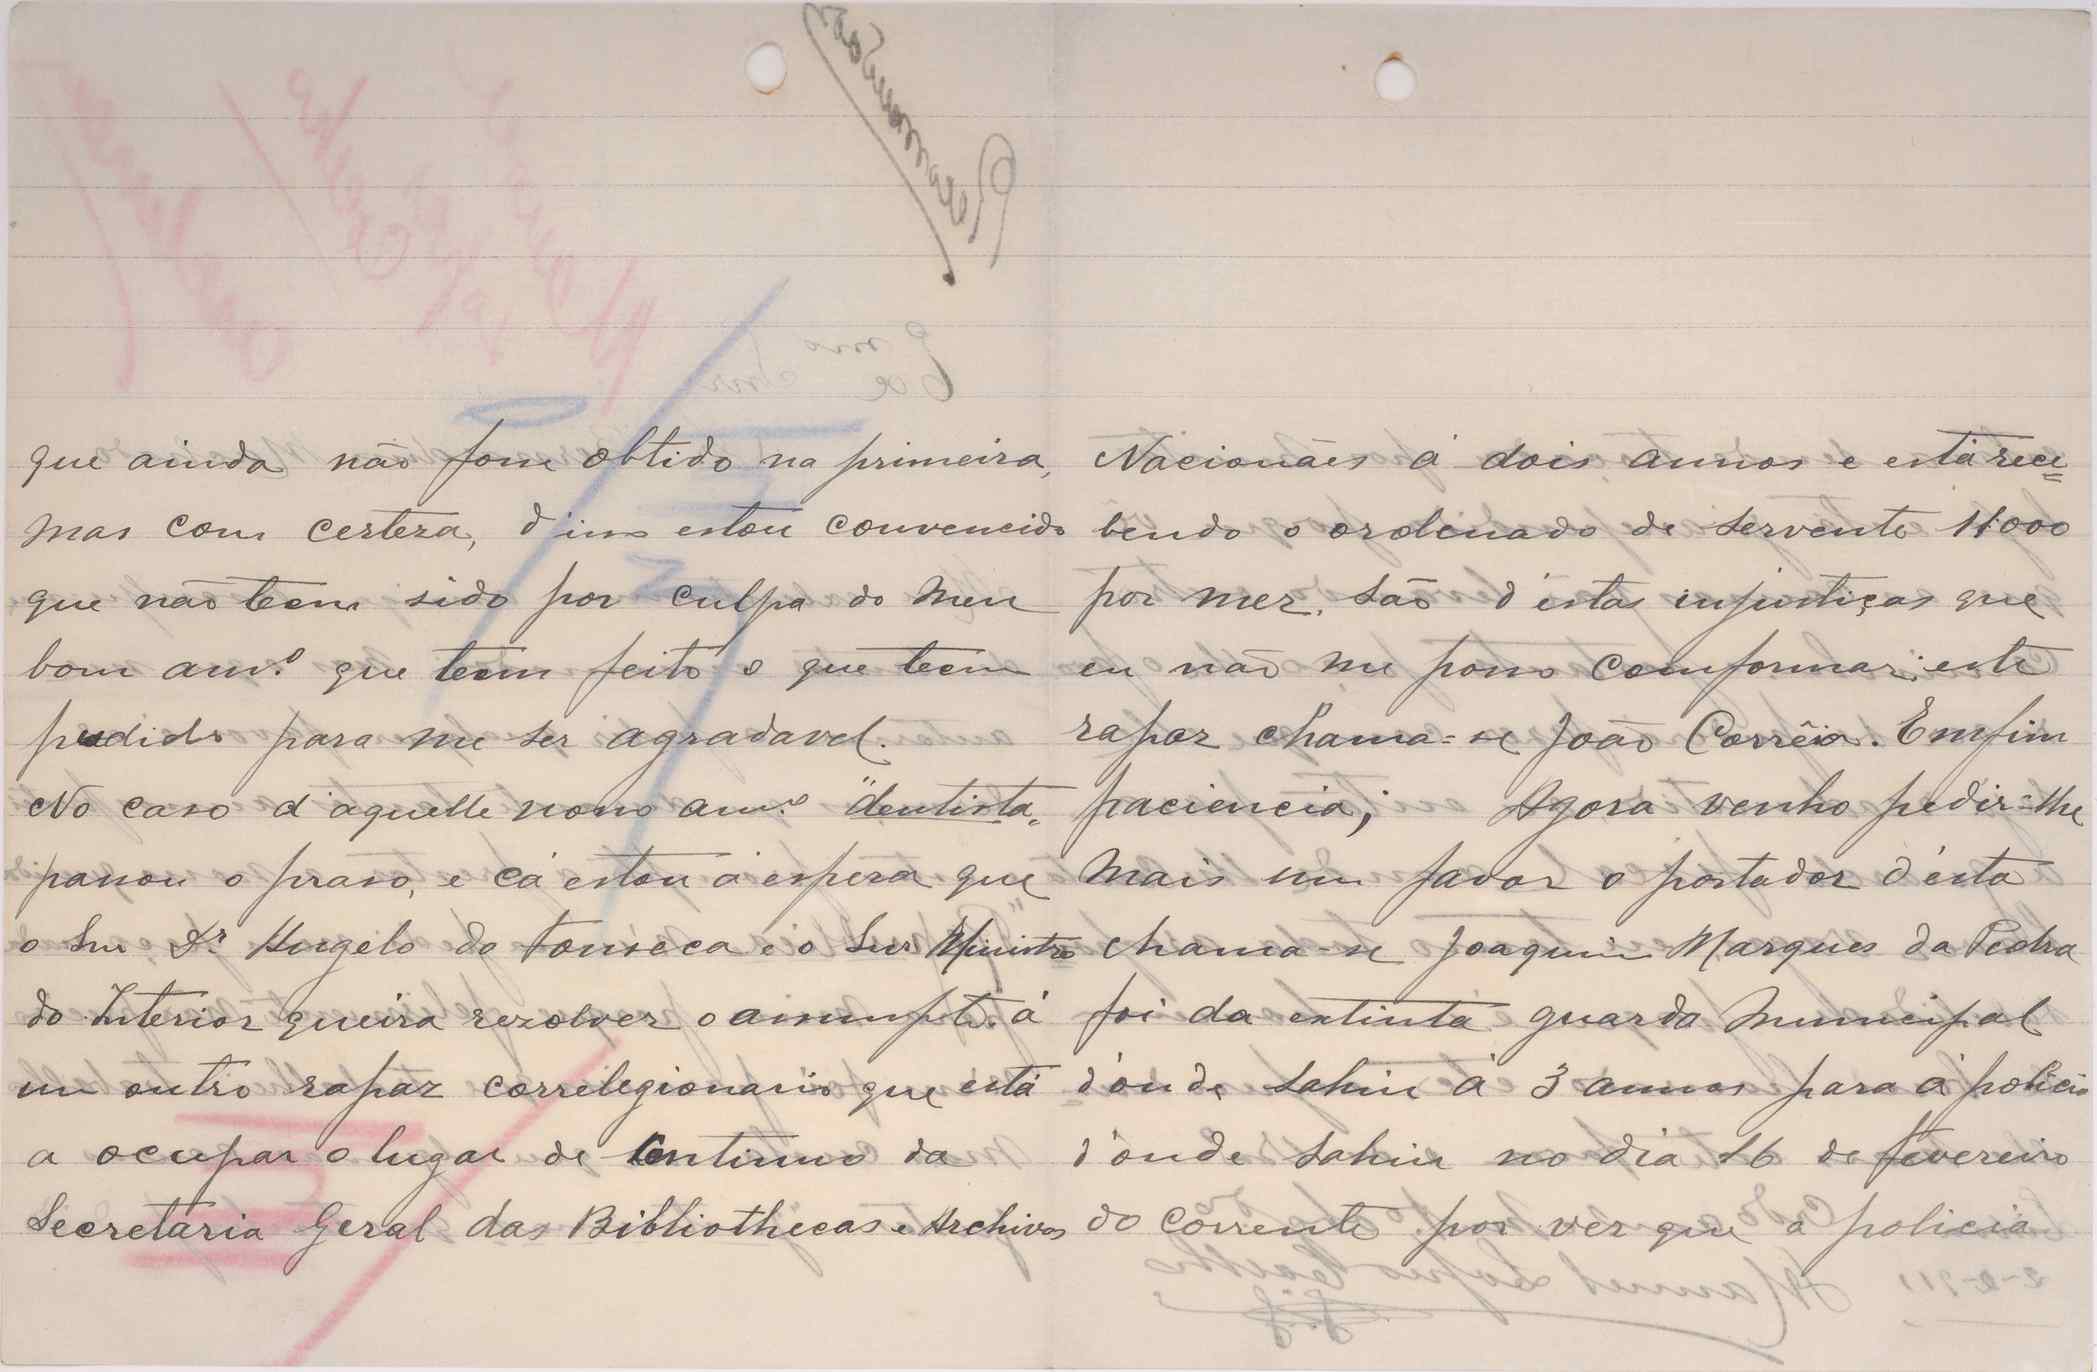 que ainda não fosse obtido na primeira,
mas com certeza, d'isso estou convencido
que não teem sido por culpa do meu
bom am.º que teem feito o que teem
pudido para me ser agradavel.
No caso d'aquelle nosso am.º "dentista"
passou o praso, e cá estou á espera que
o Snr Dr Angelo da Fonseca e o Snr Ministro
do Interior queira rezolver o assumpto. á
um outro rapaz correlegionario que está
a ocupar o lugar de Continuo da
Secretaria Geral das Bibliothecas e Archivos
Nacionães á dois annos e está rece=
bendo o ordenado de servente 11:000
por mez. são d'estas injustiças que
eu não me posso comformar; este
rapaz chama=se João Corrêia. Emfim
paciencia; Agora venho pedir-lhe
mais um favor o portador d'esta
chama-se Joaquim Marques da Pedra
foi da extinta guarda Municipal
d'onde sahiu á 3 annos para á policia
d'onde sahiu no dia 16 de fevereiro
do corrente por ver que a policia